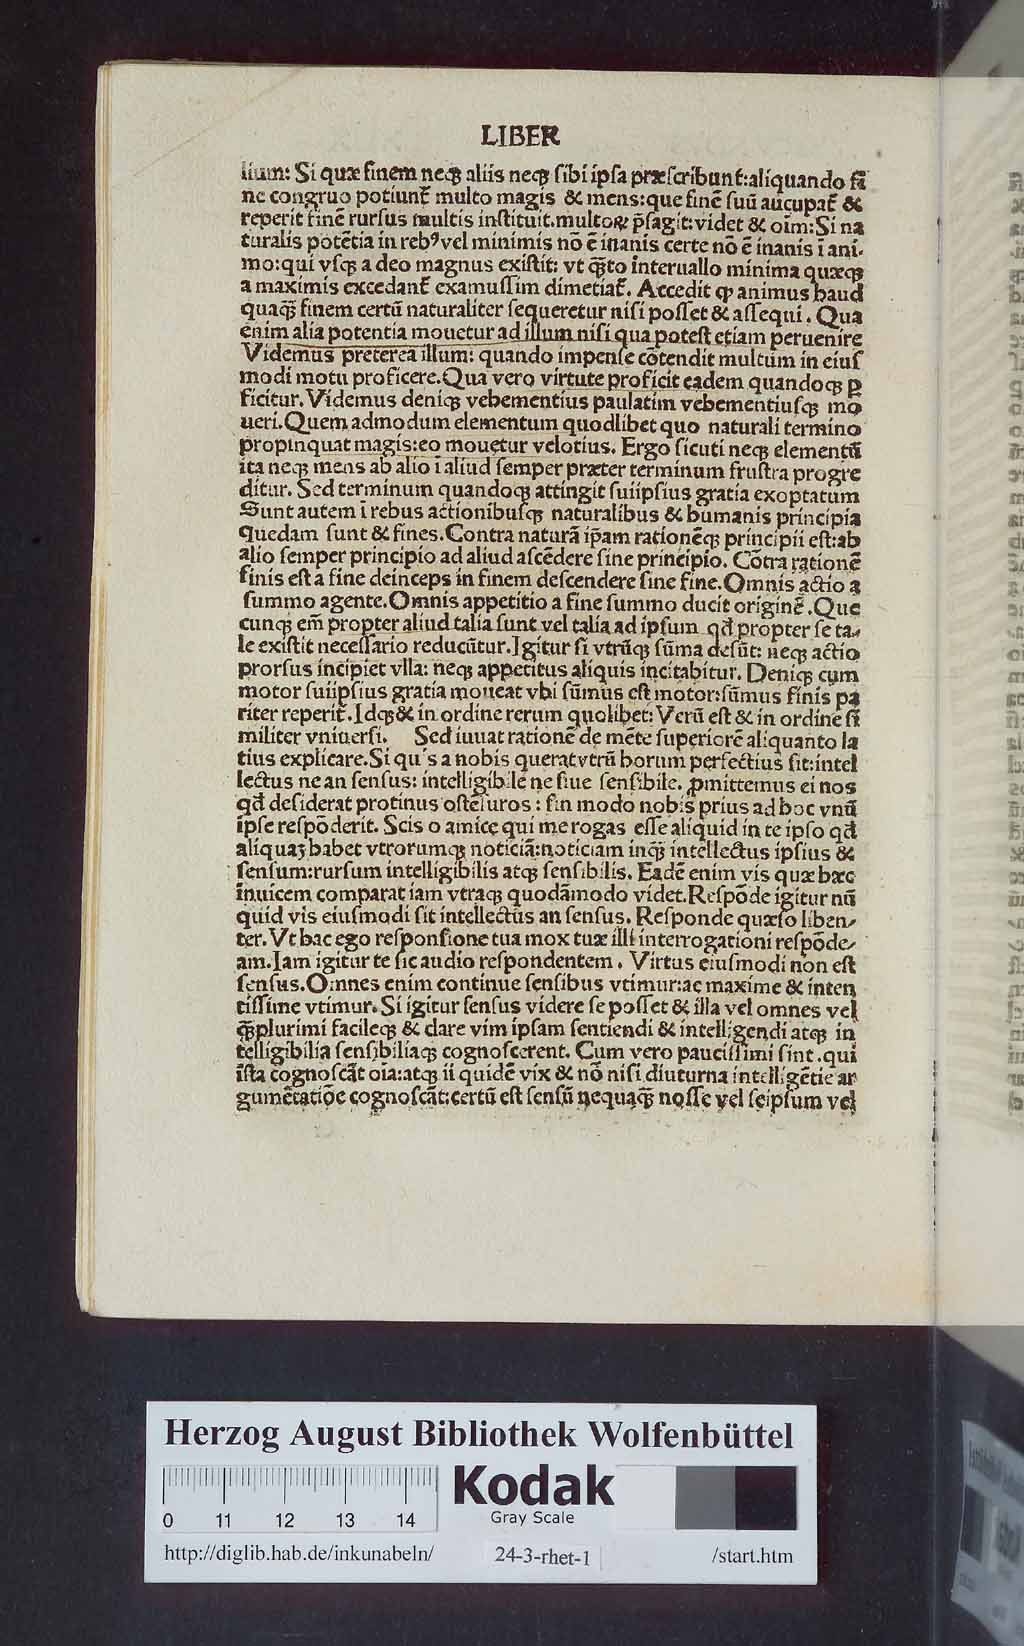 LIBER
lium: Si quæ finem neqꝫ aliis neqꝫ ſibi ipſa præſcribunt̃: aliquando fĩ
ne congruo potiunt̃ multo magis & mens: que finẽ ſuũ aucupat̃ &
reperit finẽ rurſus multis inſtituit. multoꝝ p̃ſagit: videt & oĩm: Si na
turalis potẽtia in rebꝰ vel minimis nõ ẽ inanis certe nõ ẽ inanis ĩ ani-
mo: qui vſqꝫ a deo magnus exiſtit: vt q̃ꝫto interuallo minima quæqꝫ
a maximis excedant̃ examuſſim dimetiat̃. Accedit ꝙ animus haud
quaq̃ꝫ finem certũ naturaliter ſequeretur niſi poſſet & aſſequi. Qua
enim alia potentia mouetur ad illum niſi qua poteſt etiam peruenire
Videmus preterea illum: quando impenſe cõtendit multum in eiuſ
modi motu proficere. Qua vero virtute proficit eadem quandoqꝫ ꝑ
ficitur. Videmus deniqꝫ vehementius paulatim vehementiuſqꝫ mo
ueri. Quem admodum elementum quodlibet quo naturali termino
propinquat magis: eo mouetur velotius. Ergo ſicuti neqꝫ elementũ
ita neqꝫ mens ab alio ĩ aliud ſemper præter terminum fruſtra progre
ditur. Sed terminum quandoqꝫ attingit ſuiipſius gratia exoptatum
Sunt autem ĩ rebus actionibuſqꝫ naturalibus & humanis principia
quedam ſunt & fines. Contra naturã ip̃am rationẽqꝫ principii eſt: ab
alio ſemper principio ad aliud aſcẽdere ſine principio. Cõtra rationẽ
finis eſt a fine deinceps in finem deſcendere ſine fine. Omnis actio a
ſummo agente. Omnis appetitio a fine ſummo ducit originẽ. Que
cunqꝫ em̃ propter aliud talia ſunt vel talia ad ipſum qđ propter ſe ta-
le exiſtit neceſſario reducũtur. Igitur ſi vtrũqꝫ ſũma deſũt: neqꝫ actio
prorſus incipiet vlla: neqꝫ appetitus aliquis incitabitur. Deniqꝫ cum
motor ſuiipſius gratia moueat vbi ſũmus eſt motor: ſũmus finis pa
riter reperit̃. Idqꝫ & in ordine rerum quolibet: Verũ eſt & in ordine ſĩ
militer vniuerſi. Sed iuuat rationẽ de mẽte ſuperiorẽ aliquanto la
tius explicare. Si quis a nobis querat vtrũ horum perfectius ſit: intel
lectus ne an ſenſus: intelligibile ne ſiue ſenſibile. ꝓmittemus ei nos
qđ deſiderat protinus oſtẽſuros: ſin modo nobis prius ad hoc vnũ
ipſe reſpõderit. Scis o amice qui me rogas eſſe aliquid in te ipſo qđ
aliquaꝫ habet vtrorumqꝫ noticiã: noticiam inq̃ꝫ intellectus ipſius &
ſenſum: rurſum intelligibilis atqꝫ ſenſibilis. Eadẽ enim vis quæ hæc
inuicem comparat iam vtraqꝫ quodãmodo videt. Reſpõde igitur nũ
quid vis eiuſmodi ſit intellectus an ſenſus. Reſponde quæſo liben-
ter. Vt hac ego reſponſione tua mox tuæ illi interrogationi reſpõde-
am. Iam igitur te ſic audio reſpondentem. Virtus eiuſmodi non eſt
ſenſus. Omnes enim continue ſenſibus vtimur: ac maxime & inten
tiſſime vtimur. Si igitur ſenſus videre ſe poſſet & illa vel omnes vel
q̃ꝫplurimi facileqꝫ & clare vim ipſam ſentiendi & intelligendi atqꝫ in
telligibilia ſenſibiliaqꝫ cognoſcerent. Cum vero pauciſſimi ſint. qui
iſta cognoſcãt oĩa: atqꝫ ii quidẽ vix & nõ niſi diuturna intelligẽtie ar
gumẽtatiõe cognoſcãt: certũ eſt ſenſũ nequaq̃ꝫ noſſe vel ſeipſum vel
Herzog August Bibliothek Wolfenbüttel
Kodak
Gray Scale
0 11 12 13 14
http://diglib.hab.de/inkunabeln/ 24-3-rhet-1 /start.htm